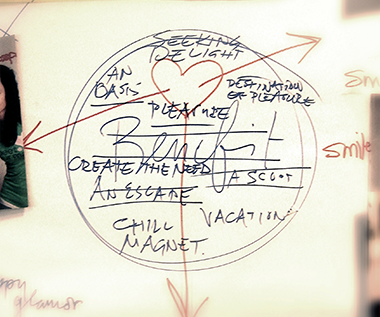 SEEKING
DELIGHT
AN
OASIS
DESTINATION
OF PLEASURE
PLEASURE
Benefit
CREATE THE NEED
AN ESCAPE
VACATION
CHILL
MAGNET.
sm
smile
ppy
glamor